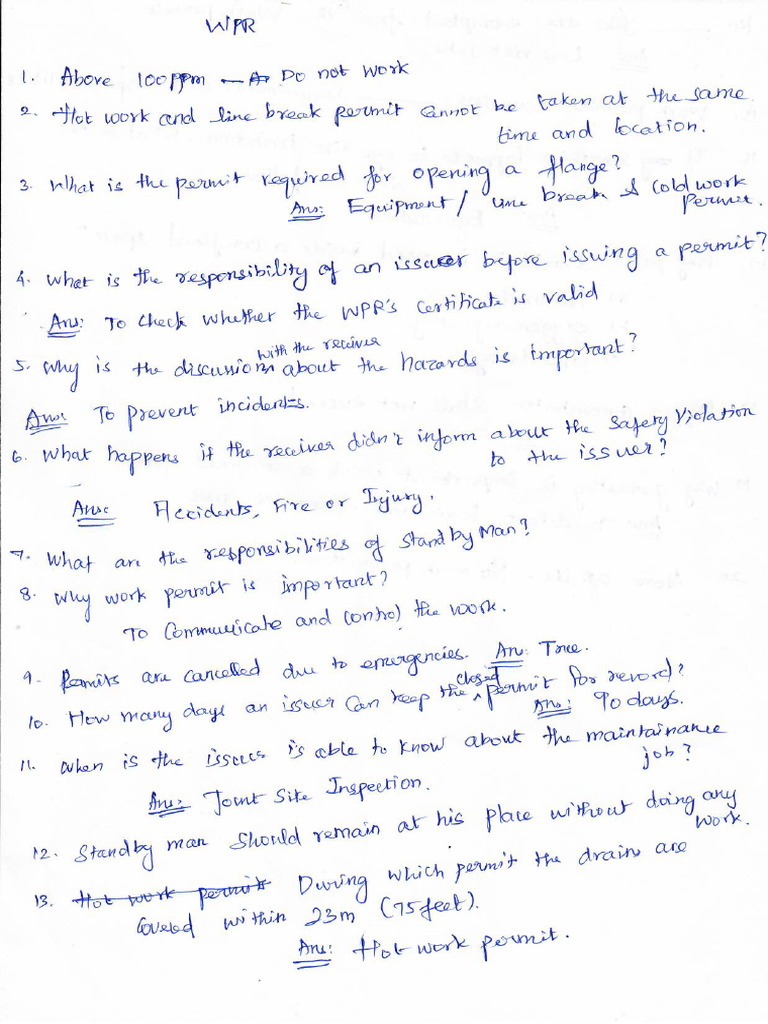 WPR
1. Above 100ppm — Do not work
2. Hot work and line break permit cannot be taken at the same
time and location.
3. What is the permit required for opening a flange?
Ans: Equipment / line break & cold work
Permit.
4. What is the responsibility of an issuer before issuing a permit?
Ans: To check whether the WPR's certificate is valid
with the receiver
5. Why is the discussion about the hazards is important?
Ans: To prevent incidents.
6. What happens if the receiver didn't inform about the safety violation
to the issuer?
Ans: Accidents, Fire or Injury.
7. What are the responsibilities of Stand by Man?
8. Why work permit is important?
To Communicate and control the work.
9. Permits are cancelled due to emergencies. An: True.
10. How many days an issuer can keep the closed permit for record?
Ans: 90 days.
11. When is the issuer is able to know about the maintainance
job?
Ans: Joint Site Inspection.
12. Standby man should remain at his place without doing any
work.
13. Hot work permit During which permit the drains are
Covered within 23m (75 feet).
Ans: Hot work permit.